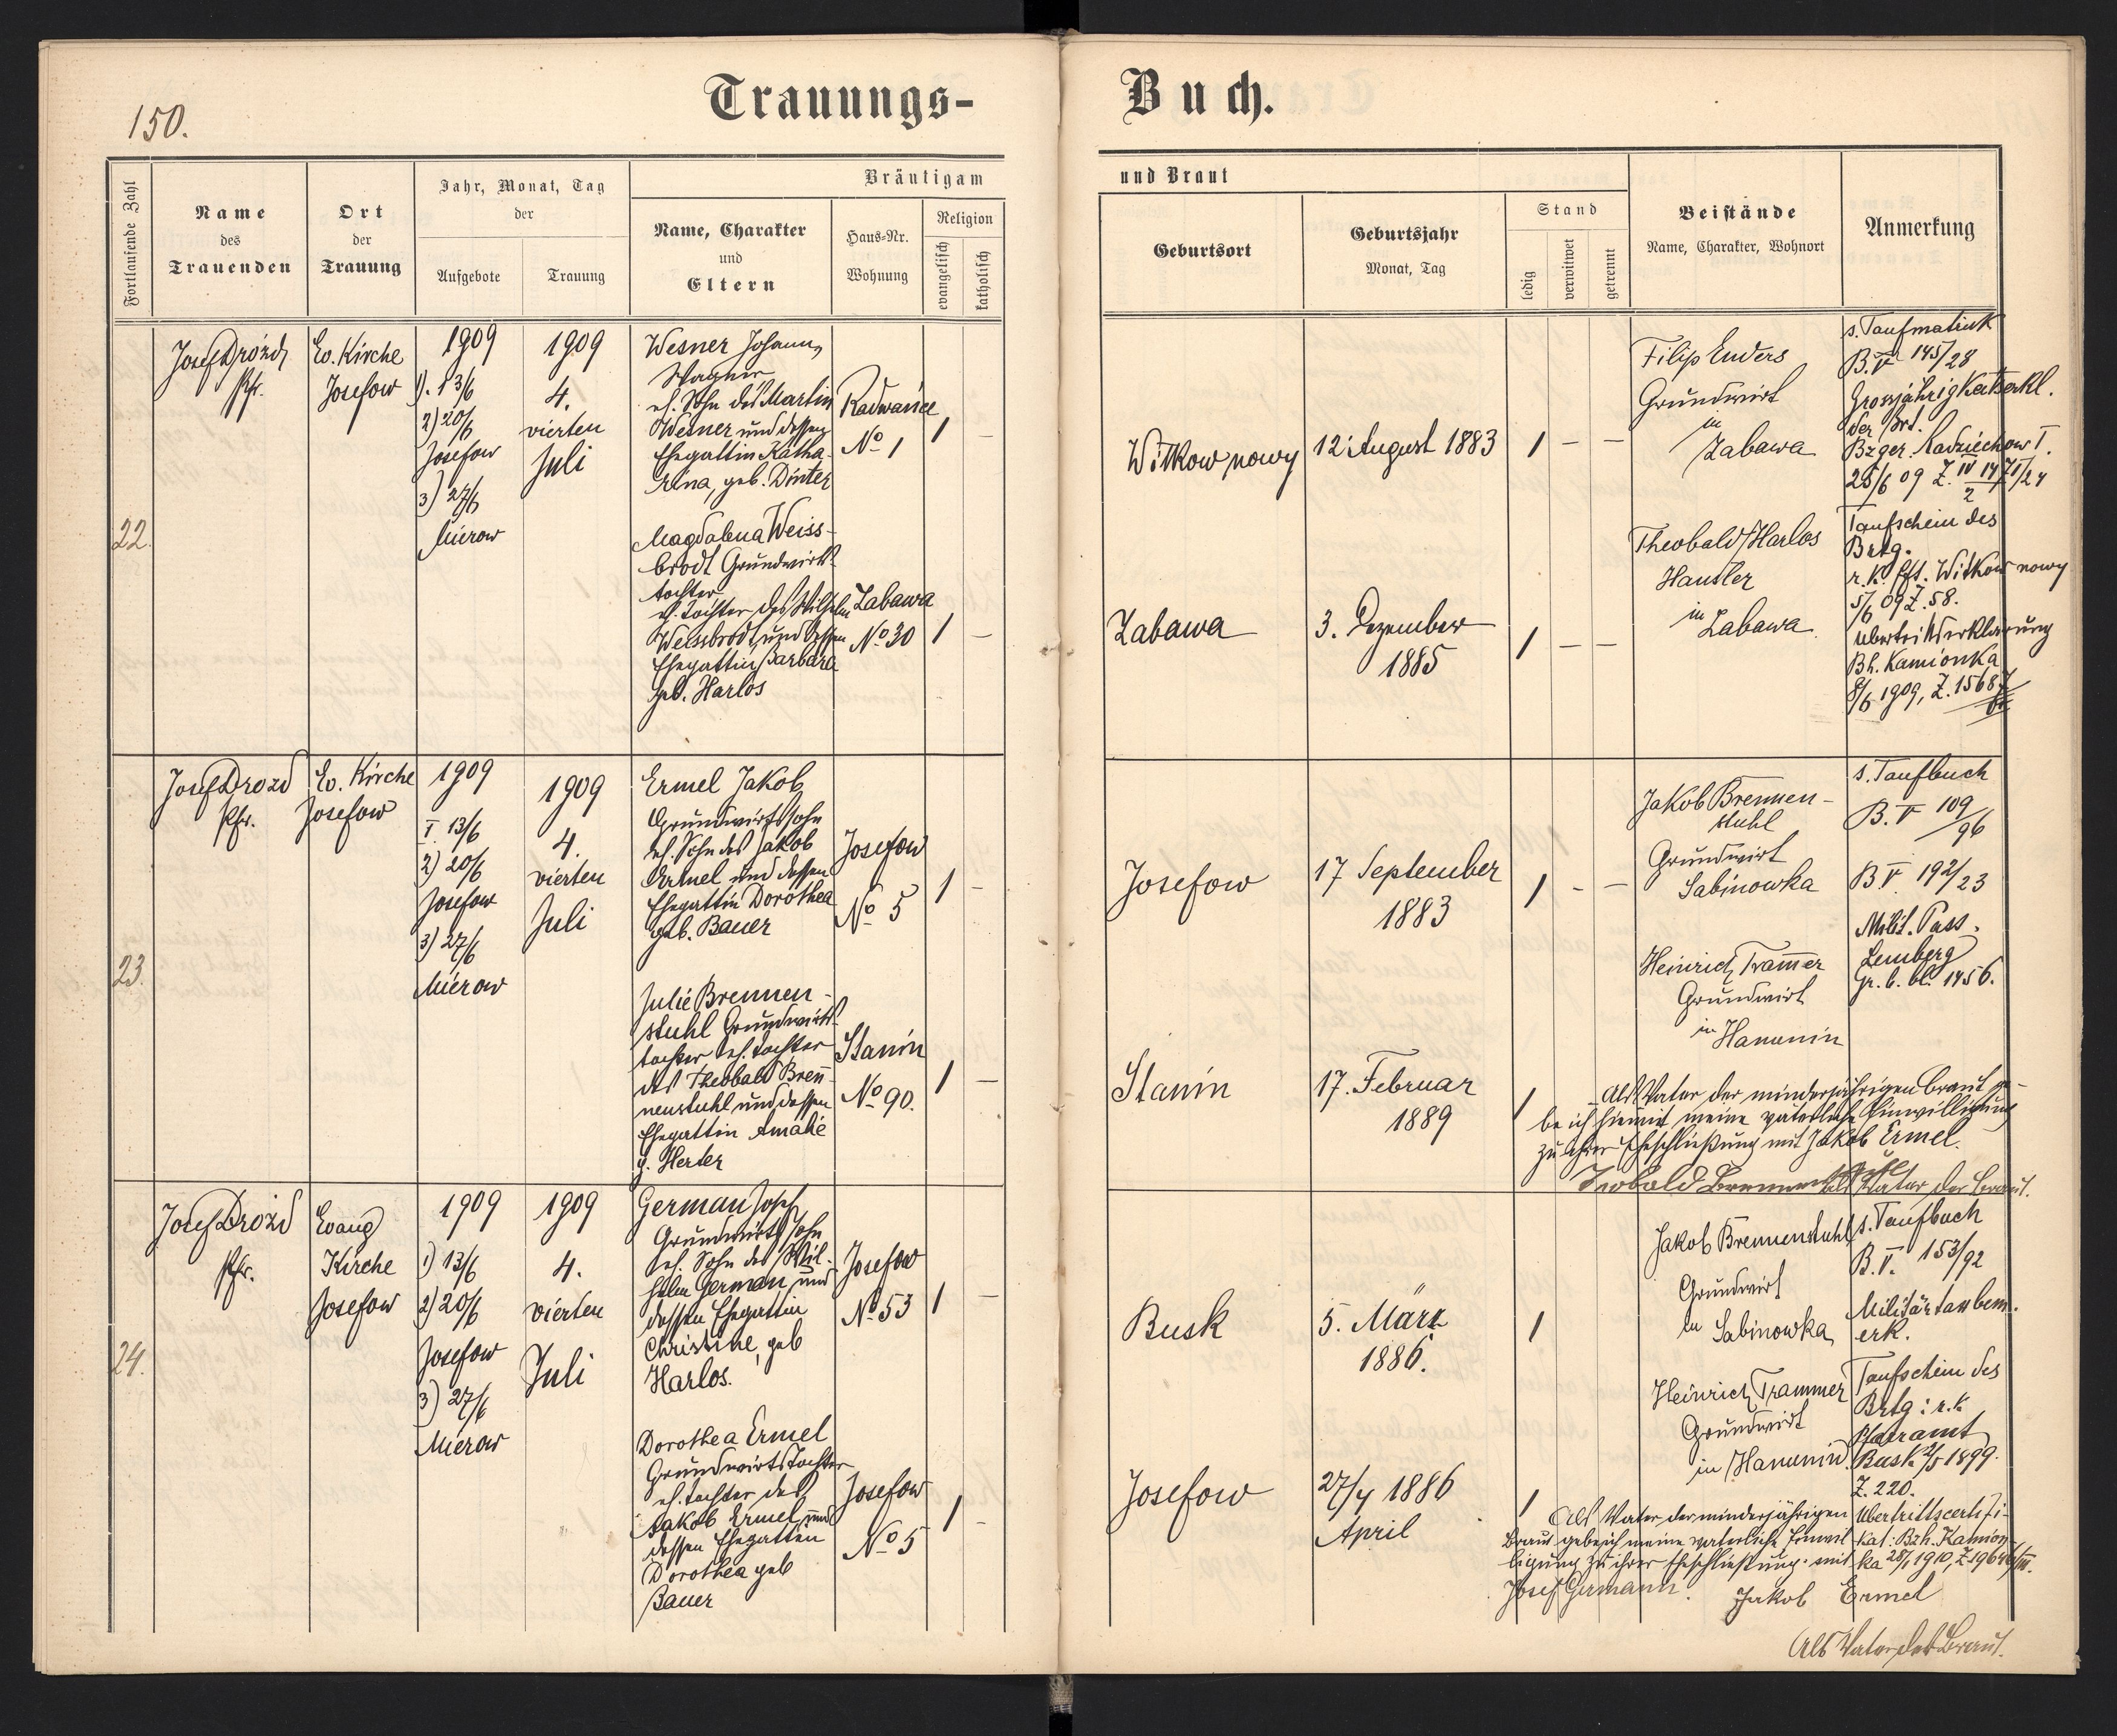 150.
Trauungs-
Buch.
Fortlaufende Zahl
Name
des
Trauenden
Ort
der
Trauung
Jahr, Monat, Tag
der
Aufgebote
Trauung
Bräutigam
Name, Charakter
und
Eltern
Haus-Nr.
Wohnung
Religion
evangelisch
katholisch
und Braut
Geburtsort
Geburtsjahr
Monat, Tag
Stand
ledig
verwitwet
getrennt
Beistände
Name, Charakter, Wohnort
Anmerkung
22.
Josef Drozd
Pfr.
Ev. Kirche
Josefow
1909
1). 13/6
2) 20/6
Josefow
3) 27/6
Mierow
1909
4.
vierten
Juli
Wesner Johann,
Wagner
eh. Sohn des Martin
Wesner und dessen
Ehegattin Katha-
rina, geb. Dinter
Radwańce
No 1
1 –
Magdalena Weiss-
brodt Grundwirts-
tochter
eh. Tochter des Wilhelm
Weissbrodt und dessen
Ehegattin Barbara
geb. Harlos
Zabawa
No 30
1 –
Witkow nowy
12 August 1883
1 – –
Zabawa
3. Dezember
1885
1 – –
Filip Enders
Grundwirt
in
Zabawa
Theobald Harlos
Häusler
in Zabawa
s. Taufmatrik
B. V 145/28
Grossjährigkeitserkl.
der Brt.
Bzger. Radziechow I.
Taufschein des
Brtg.
r. k. Pft. Witkow nowy
5/6 09 Z. 58.
Übertrittserklärung
Bh. Kamionka
8/6 1909, Z. 15687
23.
Josef Drozd
Pfr.
Ev. Kirche
Josefow
1909
I. 13/6
2) 20/6
Josefow
3) 27/6
Mierow
1909
4.
vierten
Juli
Ermel Jakob,
Grundwirtssohn
eh. Sohn des Jakob
Ermel und dessen
Ehegattin Dorothea
geb. Bauer
Josefow
No 5
1 –
Julie Brennen-
stuhl Grundwirts-
tochter eh. Tochter
des Theobald Bren-
nenstuhl und dessen
Ehegattin Amalie
g. Herter
Stanin
No 90.
1 –
Josefow
17 September
1883
1 - –
Stanin
17. Februar
1889
1
Jakob Brennen-
stuhl
Grundwirt
Sabinowka
Heinrich Trammer
Grundwirt
in Hanunin
s. Taufbuch
B. V 109/96
B V. 192/23
Milit. Pass.
Lemberg
Gr. b. bl. 1456.
Als Vater der minderjährigen Braut ge-
be ich hiemit meine väterliche Einwilligung
zu ihrer Eheschließung mit Jakob Ermel.
als Vater der Braut.
24.
Josef Drozd
Pfr.
Evang
Kirche
Josefow
1909
1) 13/6
2) 20/6
Josefow
3) 27/6
Mierow
1909
4.
vierten
Juli
German Josef
Grundwirtssohn
eh. Sohn des Wil-
helm German und
dessen Ehegattin
Christine, geb
Harlos.
Josefow
No 53
1 –
Dorothea Ermel
Grundwirtstochter
eh. Tochter des
Jakob Ermel und
dessen Ehegattin
Dorothea geb
Bauer
Josefow
No 5
1 -
Busk
5. März
1886.
1
Josefow
27/4 1886
April
1
Jakob Brennenstuhl
Grundwirt
in Sabinowka
Heinrich Trammer
Grundwirt
in Hanunin
s. Taufbuch
B. V. 153/92
Taufschein des
Brtg: r. k.
Pfarramt
Busk 2/5 1899.
Z. 220.
Übertrittscertifi-
kat: Bzh. Kamion-
Als Vater der minderjährigen
Braut gebe ich meine väterliche Einwil
ligung zu ihrer Eheschließung mit
Josef Germann.
Jakob Ermel
Als Vater der Braut.